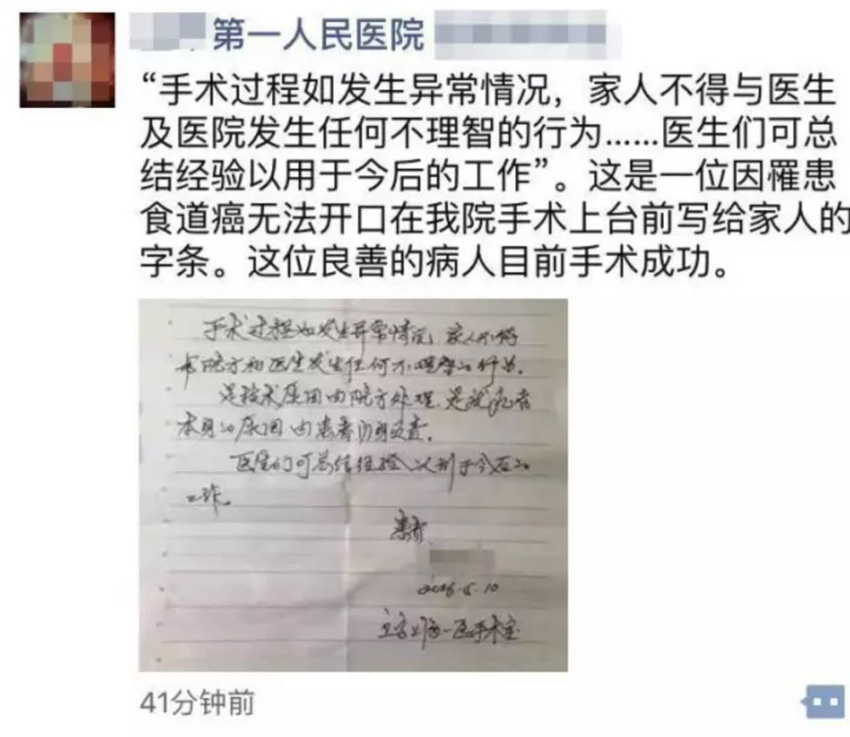 第一人民医院
“手术过程如发生异常情况，家人不得与医生
及医院发生任何不理智的行为……医生们可总
结经验以用于今后的工作”。这是一位因罹患
食道癌无法开口在我院手术上台前写给家人的
字条。这位良善的病人目前手术成功。
手术过程如发生异常情况，家人不得
与院方和医生发生任何不理智的行为。
是技术原因由院方处理，是我患者
本身的原因由患者自身负责。
医生们可总结经验以利于今后的
工作。
患者
2016.5.10
一医手术室
41分钟前